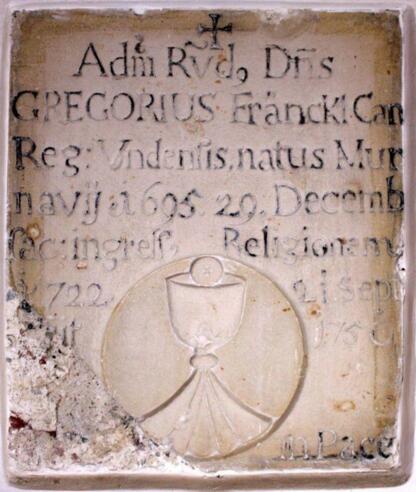 Adm̄ Rv̄d, Dn̄s
GREGORIUS Fränckl Can
Reg: Undensis, natus Mur
navij 1695. 29. Decemb
sac: ingress, Religionem
1722 21. Sept
175
in Pace